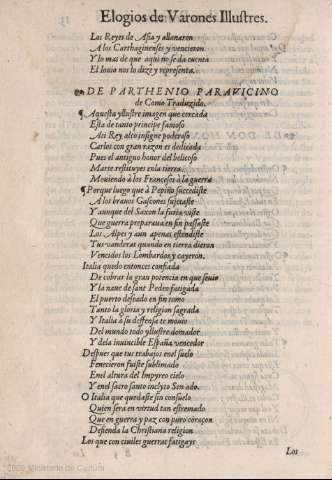 Elogios de Varones Illustres.
Los Reyes de Asia y allanaron
A los Carthaginenses y vencieron
Y lo mas de que aqui no se da cuenta
El Iouio nos lo dize y representa.
DE PARTHENIO PARAVICINO
de Como Traduzido.
¶ Aquesta yllustre imagen que cercada
Esta de tanto principe famoso
A ti Rey, alto insigne poderoso
Carlos con gran razon es dedicada
Pues el antiguo honor del belicoso
Marte restituyes en la tierra
Mouiendo a los Franceses a la guerra
¶ Porque luego que à Pepino succediste
A los brauos Gascones sujetaste
Y aunque del Saxon la furia viste
Que guerra preparaua en fin passaste
Los Alpes y aun apenas estendiste
Tus vanderas quando en tierra dieron
Vencidos los Lombardos y cayeron.
Italia quedo entonces confiada
De cobrar la gran potencia en que se vio
Y la naue de sant Pedro fatigada
El puerto desseado en fin tomo
Tanto la gloria y religion sagrada
Y Italia à su deffensa te mouio
Del mundo todo yllustre domador
Y dela inuincible España vencedor
Despues que tus trabajos enel suelo
Fenecieron fuiste sublimado
Enel altura del Impyreo cielo
Y enel sacro santo inclyto Senado.
O Italia que quedaste sin consuelo
Quien sera en virtud tan estremado
Que en guerra y paz con puro coraçon
Defienda la Christiana religion
Los que con ciuiles guerras fatigays
Los
2009 Ministerio de Cultura